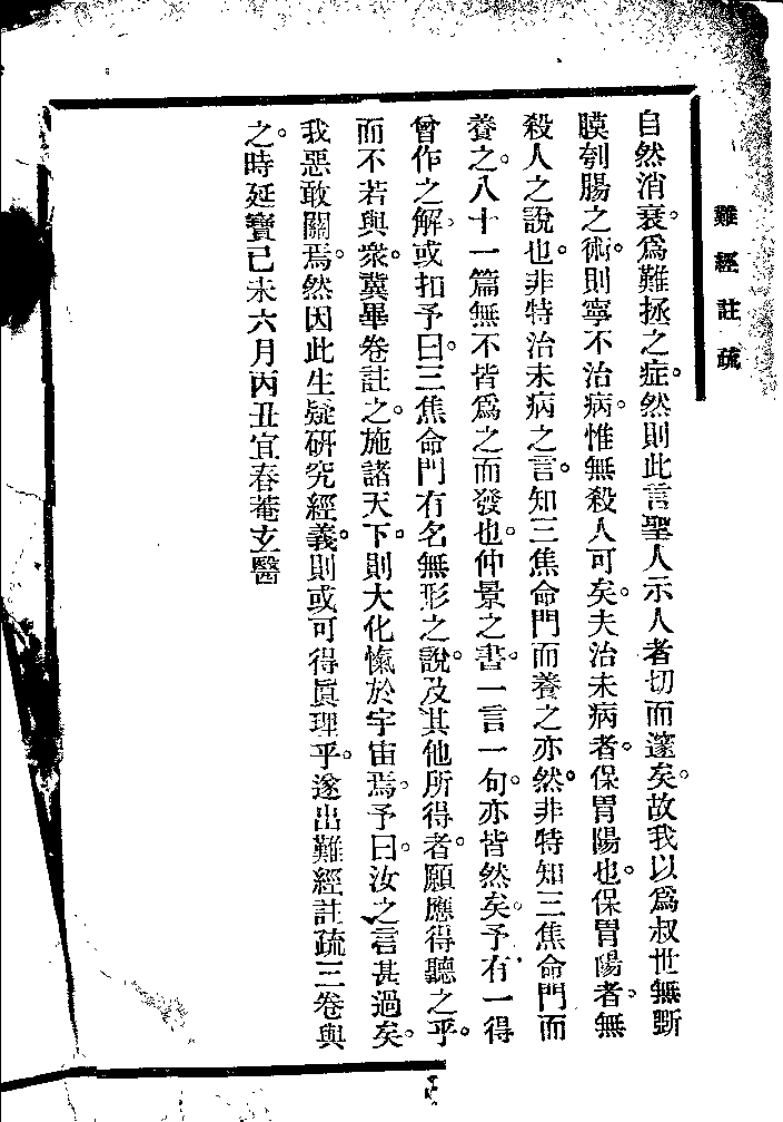 難經註疏
自然消衰。爲難拯之症。然則此言聖人示人者切而邃矣。故我以爲叔世無斷
膜刳腸之術。則寧不治病。惟無殺人可矣。夫治未病者。保胃陽也。保胃陽者。無
殺人之說也。非特治未病之言。知三焦命門而養之亦然。非特知三焦命門而
養之。八十一篇無不皆爲之而發也。仲景之書。一言一句。亦皆然矣。予有一得
曾作之解、或扣予曰。三焦命門有名無形之說。及其他所得者。願應得聽之乎。
而不若與衆。冀畢卷註之。施諸天下。則大化愾於宇宙焉。予曰。汝之言甚過矣。
我惡敢關焉。然因此生疑硏究經義。則或可得眞理乎。遂出難經註疏三卷與
之。時延寶己未六月丙丑宜春菴玄醫